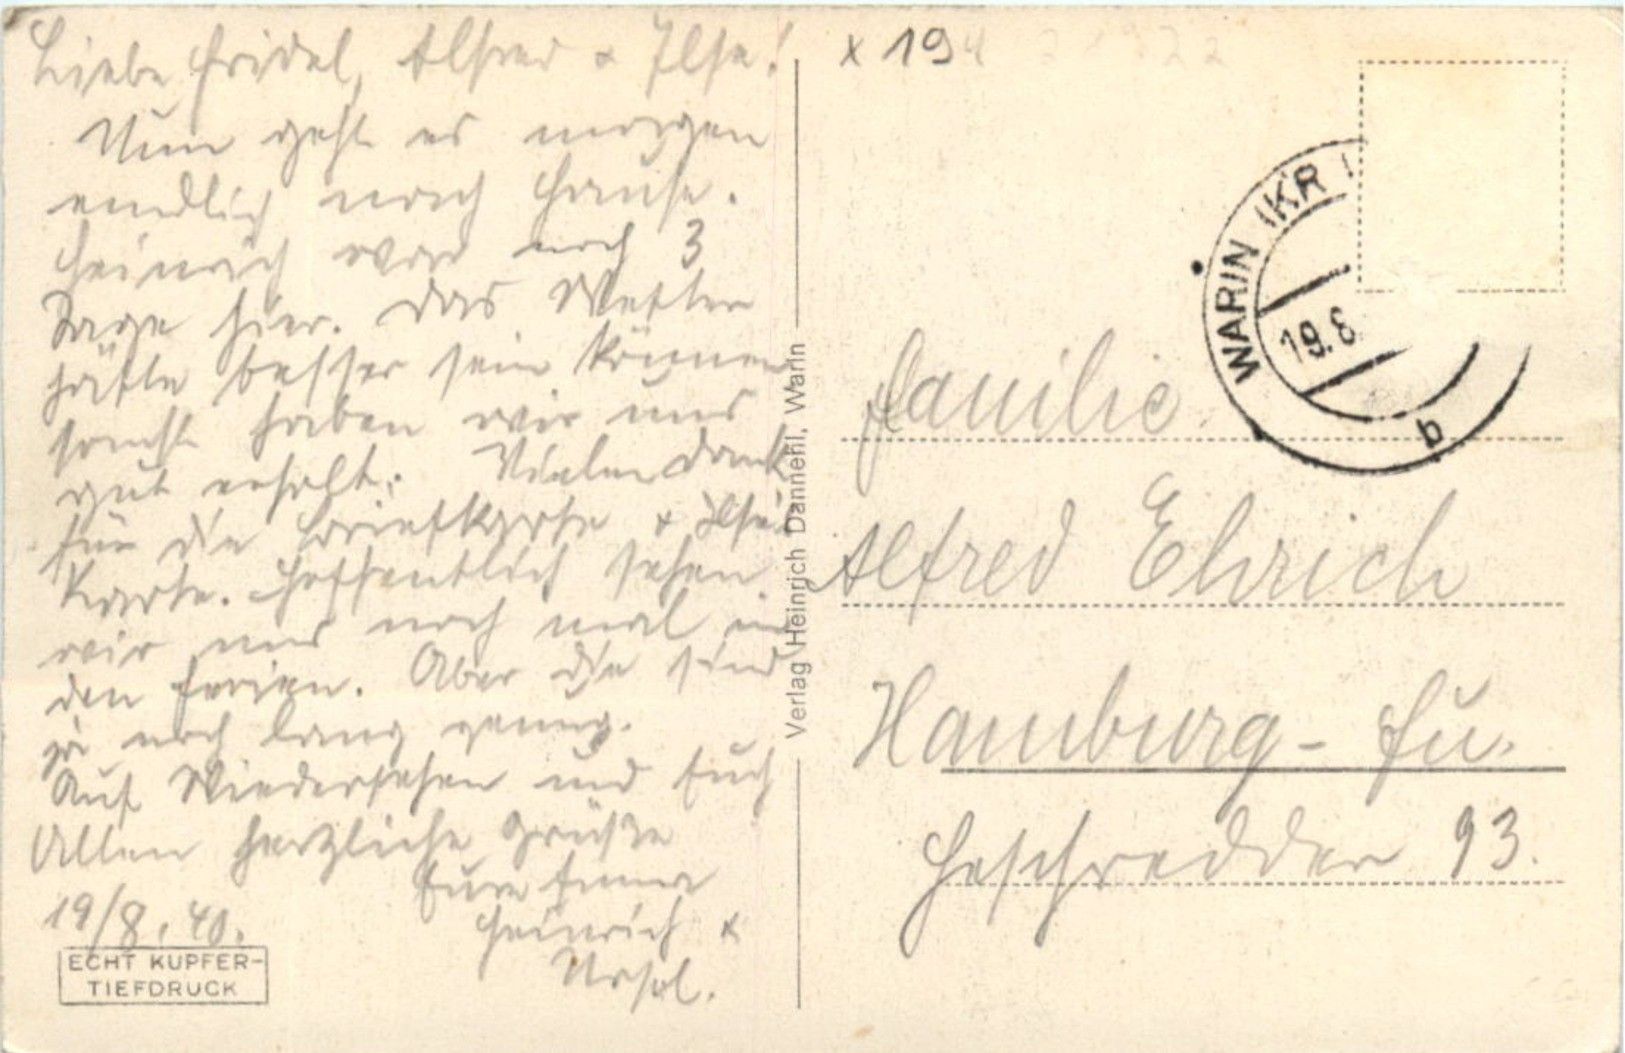 Liebe Fridel, Alfred & Ilse!
Nun geht es morgen
endlich nach Hause.
Heinrich war noch 3
Tage hier. Das Wetter
hätte besser sein können
sonst haben wir uns
gut erholt. Vielen Dank
für die Briefkarte & Ilse's
Karte. Hoffentlich sehen
wir uns noch mal in
den Ferien. Aber die sind
ja noch lang genug.
Auf Wiedersehen und Euch
Allen herzliche Grüße
Eure Emma
Heinrich &
Ursel.
19/8. 40.
ECHT KUPFER-
TIEFDRUCK
Verlag Heinrich Dannehl, Warin
x 194
WARIN (KR
19.8
b
Familie
Alfred Ehrich
Hamburg-Fu.
93.